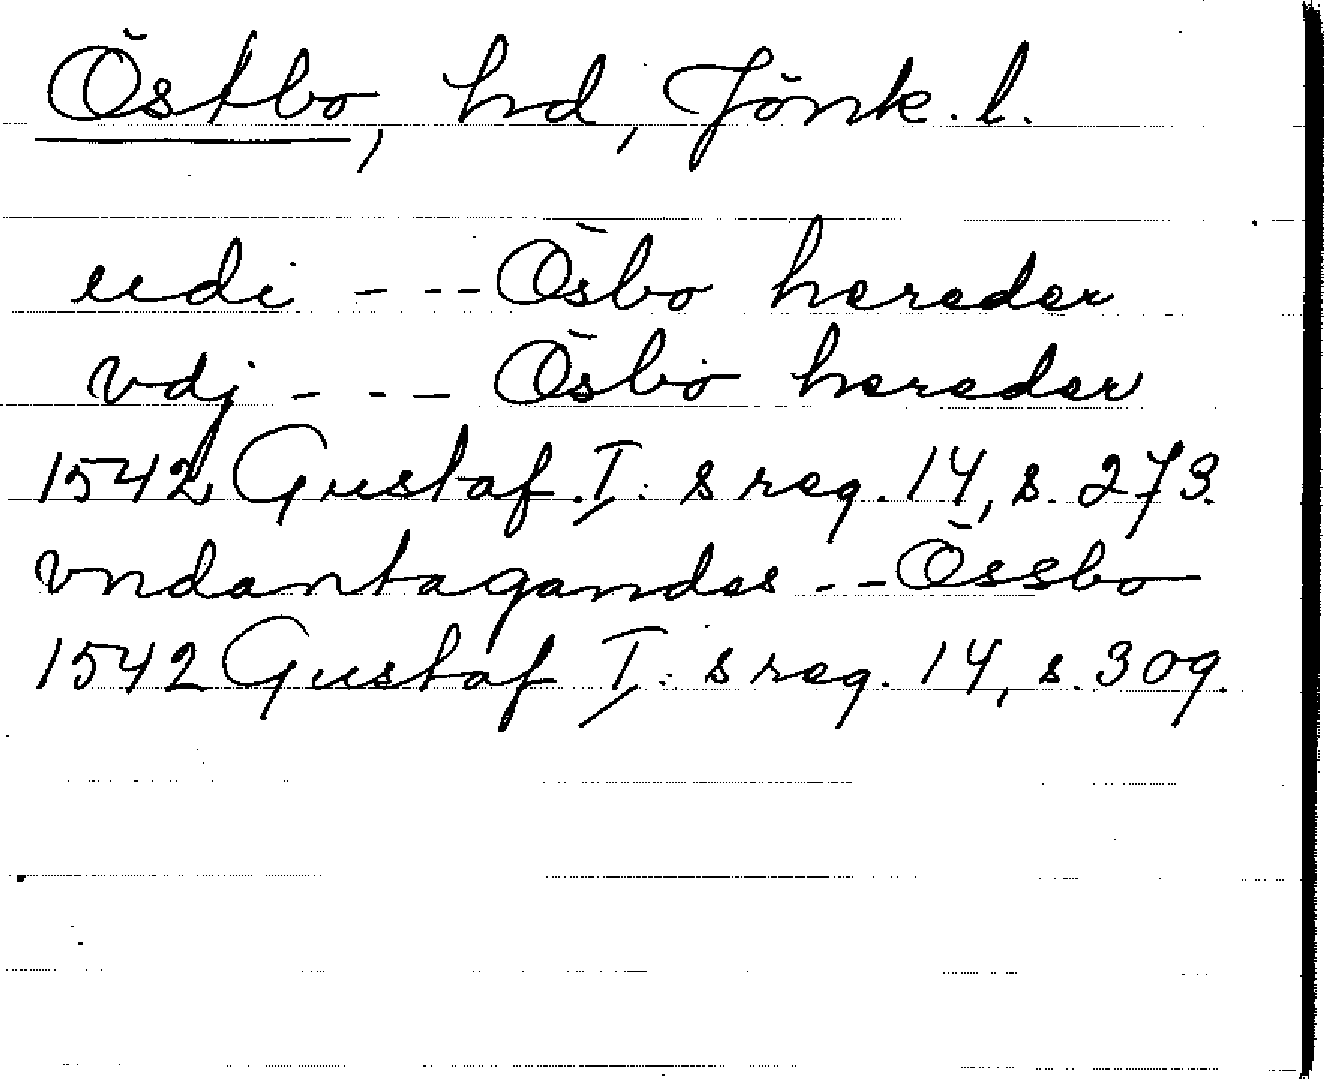 Östbo, hd, Jönk. l.
udi - - - Ösbo hereder
vdj - - - Ösbo hereder
1542 Gustaf I: s reg. 14, s. 273.
vndantagandes - - Össbo
1542 Gustaf I: s reg. 14, s. 309.